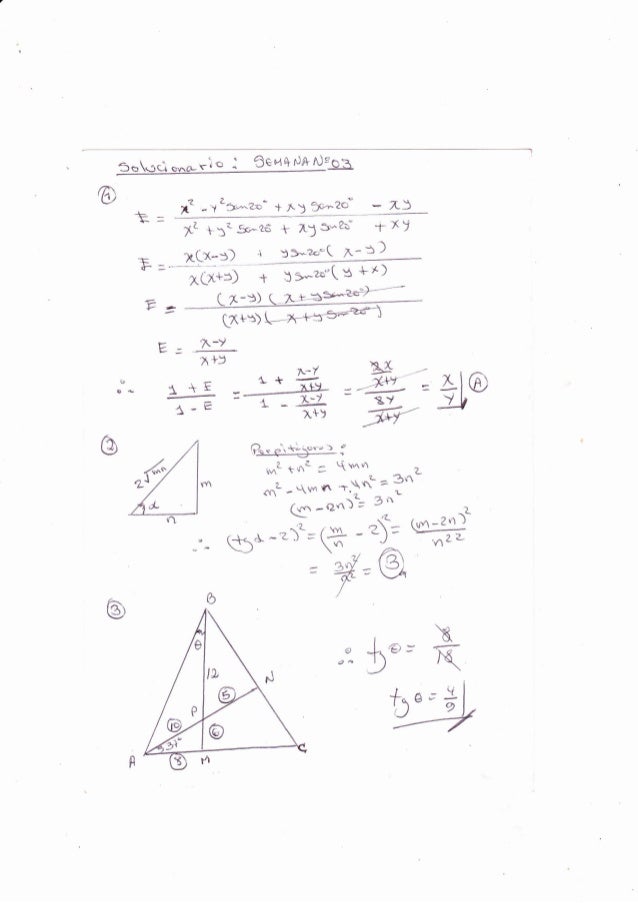 Solucionario : SEMANA Nº 03
①
E = (x² - y² Sen20° + xy Sen20° - xy) / (x² + y² Sen20° + xy Sen20° + xy)
E = (x(x-y) + ySen20°(x-y)) / (x(x+y) + ySen20°(y+x))
E = ((x-y)(x+ySen20°)) / ((x+y)(x+ySen20°))
E = (x-y) / (x+y)
∴ (1+E) / (1-E) = (1 + (x-y)/(x+y)) / (1 - (x-y)/(x+y)) = (2x/(x+y)) / (2y/(x+y)) = x/y Ⓐ
②
2√mn
m
α
n
Por pitágoras :
m² + n² = 4mn
m² - 4mn + 4n² = 3n²
(m - 2n)² = 3n²
∴ (tgα - 2)² = (m/n - 2)² = (m-2n)² / n²
= 3n²/n² = ③
③
B
θ
12
N
⑤
P
⑩
⑥
37°
A
⑧
M
C
∴ tgθ = 8/18
tgθ = 4/9